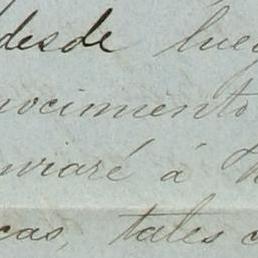 desde lueg
nocimiento
nviaré á
cas, tales c